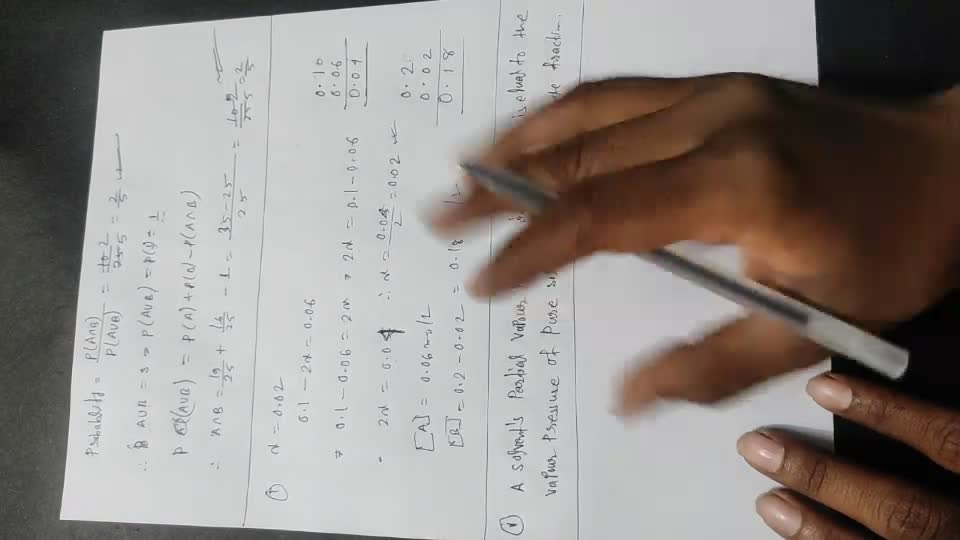 Probability = P(A∩B) / P(A∪B) = 10 2 / 25 5 = 2/5
∴ A∪B = S ⇒ P(A∪B) = P(S) = 1
P (A∪B) = P(A) + P(B) - P(A∩B)
∴ A∩B = 19/25 + 16/25 - 1 = 35-25 / 25 = 10 2 / 25 5 = 2/5
x = 0.02
0.1 - 2x = 0.06
⇒ 0.1 - 0.06 = 2x ⇒ 2x = 0.1 - 0.06
0.10
0.06
0.04
2x = 0.04 ∴ x = 0.04/2 = 0.02
[A] = 0.06 mol/L
[B] = 0.2 - 0.02 = 0.18
0.2
0.02
0.18
A solvent's Partial vapour is equal to the
vapour Pressure of Pure fraction.